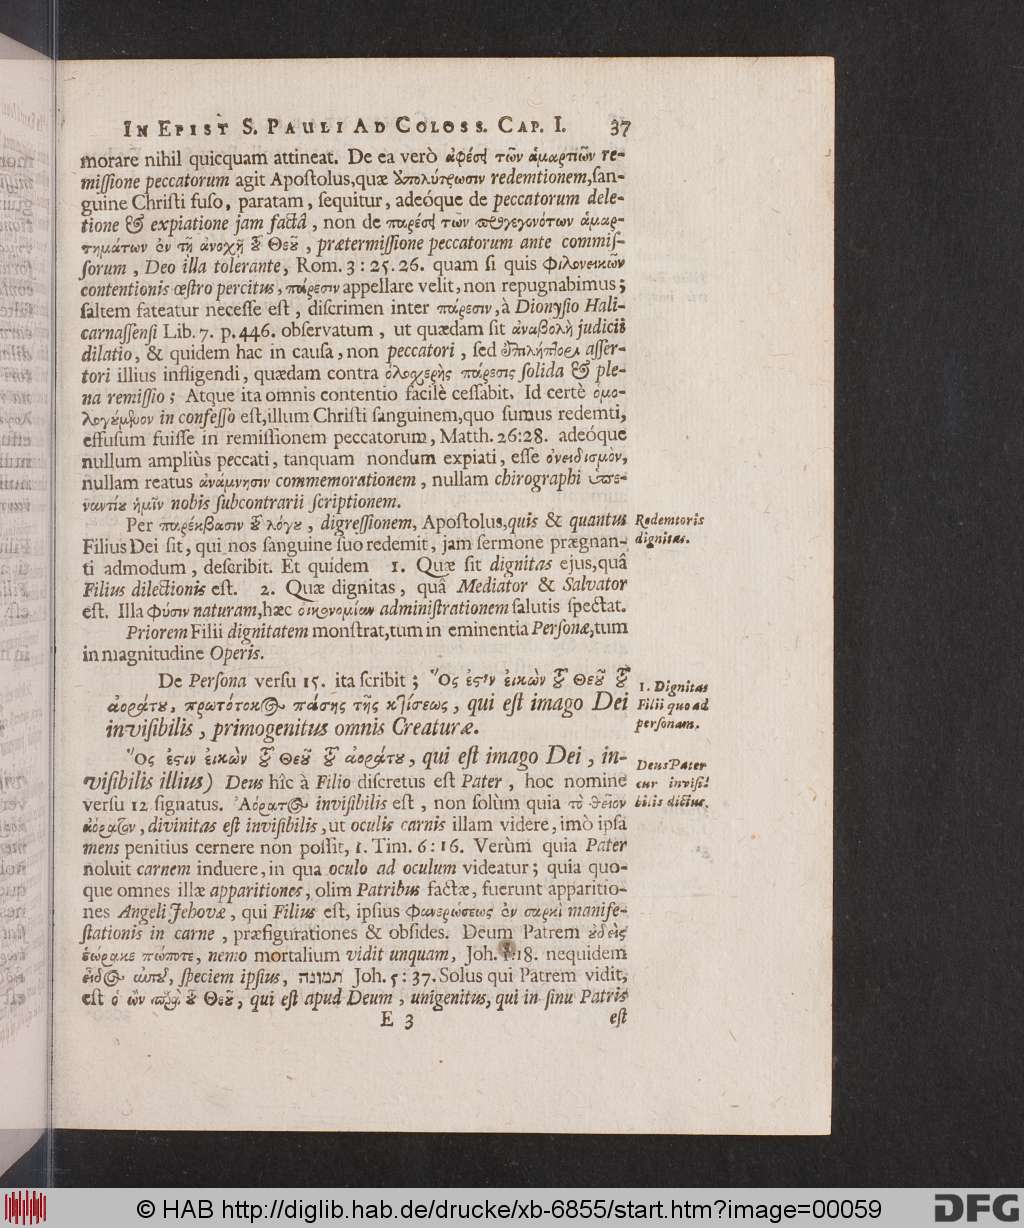 IN EPIST S. PAULI AD COLOSS. CAP. I. 37
morare nihil quicquam attineat. De ea verò ἀφέσει τῶν ἁμαρτιῶν re-
missione peccatorum agit Apostolus, quæ ἀπολύτρωσιν redemtionem, san-
guine Christi fuso, paratam, sequitur, adeóque de peccatorum dele-
tione & expiatione jam factâ, non de παρέσει τῶν προγεγονότων ἁμαρ-
τημάτων ἐν τῇ ἀνοχῇ τοῦ Θεοῦ, prætermissione peccatorum ante commis-
sorum, Deo illa tolerante, Rom. 3: 25. 26. quam si quis φιλονεικῶν
contentionis œstro percitus, πάρεσιν appellare velit, non repugnabimus;
saltem fateatur necesse est, discrimen inter πάρεσιν, à Dionysio Hali-
carnassensi Lib. 7. p. 446. observatum, ut quædam sit ἀναβολὴ judicii
dilatio, & quidem hac in causa, non peccatori, sed asser-
tori illius infligendi, quædam contra ὁλοχερὴς πάρεσις solida & ple-
na remissio; Atque ita omnis contentio facilè cessabit. Id certè ὁμο-
λογούμενον in confesso est, illum Christi sanguinem, quo sumus redemti,
effusum fuisse in remissionem peccatorum, Matth. 26:28. adeóque
nullum ampliùs peccati, tanquam nondum expiati, esse ὀνειδισμὸν,
nullam reatus ἀνάμνησιν commemorationem, nullam chirographi ὑπε-
ναντίου ἡμῖν nobis subcontrarii scriptionem.
Per παρέκβασιν τοῦ λόγου, digressionem, Apostolus, quis & quantus
Redemtoris
Filius Dei sit, qui nos sanguine suo redemit, jam sermone prægnan-
dignitas.
ti admodum, describit. Et quidem 1. Quæ sit dignitas ejus, quâ
Filius dilectionis est. 2. Quæ dignitas, quâ Mediator & Salvator
est. Illa φύσιν naturam, hæc οἰκονομίαν administrationem salutis spectat.
Priorem Filii dignitatem monstrat, tum in eminentia Personæ, tum
in magnitudine Operis.
De Persona versu 15. ita scribit; Ὅς ἐστιν εἰκὼν τοῦ Θεοῦ τοῦ
1. Dignitas
ἀοράτου, πρωτότοκος πάσης τῆς κτίσεως, qui est imago Dei
Filii quo ad
invisibilis, primogenitus omnis Creaturæ.
personam.
Ὅς ἐστιν εἰκὼν τοῦ Θεοῦ τοῦ ἀοράτου, qui est imago Dei, in-
Deus Pater
visibilis illius) Deus hîc à Filio discretus est Pater, hoc nomine
cur invisi-
versu 12 signatus. Ἀόρατος invisibilis est, non solùm quia τὸ θεῖον
bilis dictus.
ἀόρατον, divinitas est invisibilis, ut oculis carnis illam videre, imò ipsa
mens penitius cernere non possit, 1. Tim. 6: 16. Verùm quia Pater
noluit carnem induere, in qua oculo ad oculum videatur; quia quo-
que omnes illæ apparitiones, olim Patribus factæ, fuerunt apparitio-
nes Angeli Jehovæ, qui Filius est, ipsius φανερώσεως ἐν σαρκὶ manife-
stationis in carne, præfigurationes & obsides. Deum Patrem οὐδεὶς
ἑώρακε πώποτε, nemo mortalium vidit unquam, Joh. 1:18. nequidem
εἶδος αὐτοῦ, speciem ipsius, תמונה Joh. 5: 37. Solus qui Patrem vidit,
est ὁ ὢν παρὰ τοῦ Θεοῦ, qui est apud Deum, unigenitus, qui in sinu Patris
E 3 est
© HAB http://diglib.hab.de/drucke/xb-6855/start.htm?image=00059 DFG